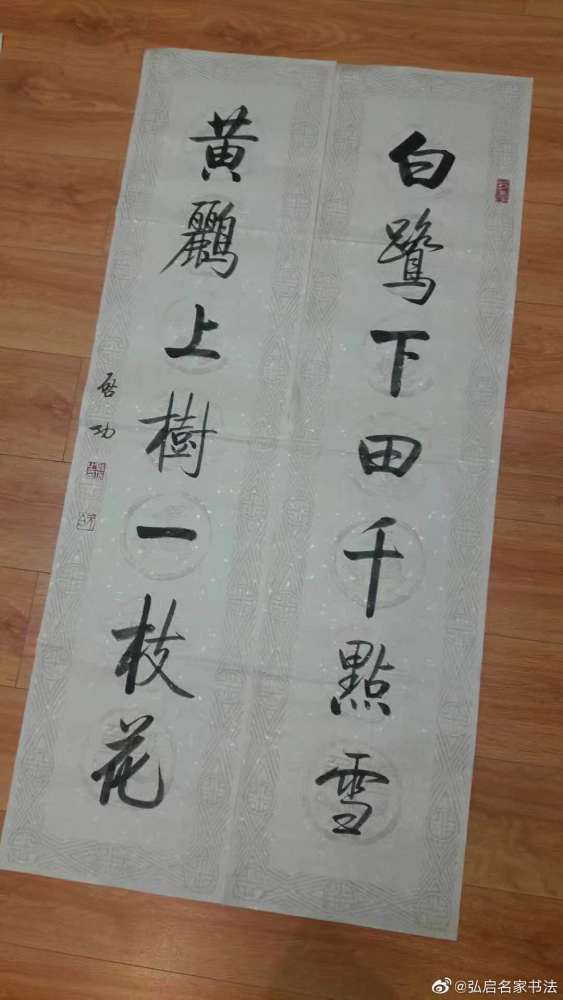 白鷺下田千點雪
黃鸝上樹一枝花
啓功
@弘启名家书法